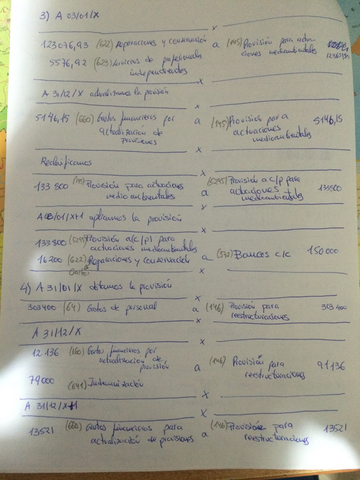 3) A 03/01/X
123076,93 (622) Reparaciones y conservación a (145) Provisión para actua
5576,92 (623) Servicios de profesionales ciones medioambientales
independientes
A 31/12/X actualizamos la provisión
5146,15 (660) Gastos financieros por a (145) Provisión para 5146,15
actualización de actuaciones
provisiones medioambientales
Reclasificamos
133800 (145) Provisión para actuaciones a (5295) Provisión a c/p para 133800
medioambientales actuaciones
medioambientales
/01/X+1 aplicamos la provisión
133800 (5295) Provisión a (c/p) para
actuaciones medioambientales
16200 (622) Reparaciones y conservación a (572) Bancos c/c 150000
4) A 31/01/X dotamos la provisión
303400 (64) Gastos de personal a (146) Provisión para 303400
reestructuraciones
A 31/12/X
12136 (660) Gastos financieros por
actualización de a (146) Provisión para 91136
provisión reestructuraciones
79000 (641) Indemnización
A 31/12/X+1
13521 (660) Gastos financieros para a (146) Provisión para 13521
actualización de provisiones reestructuraciones